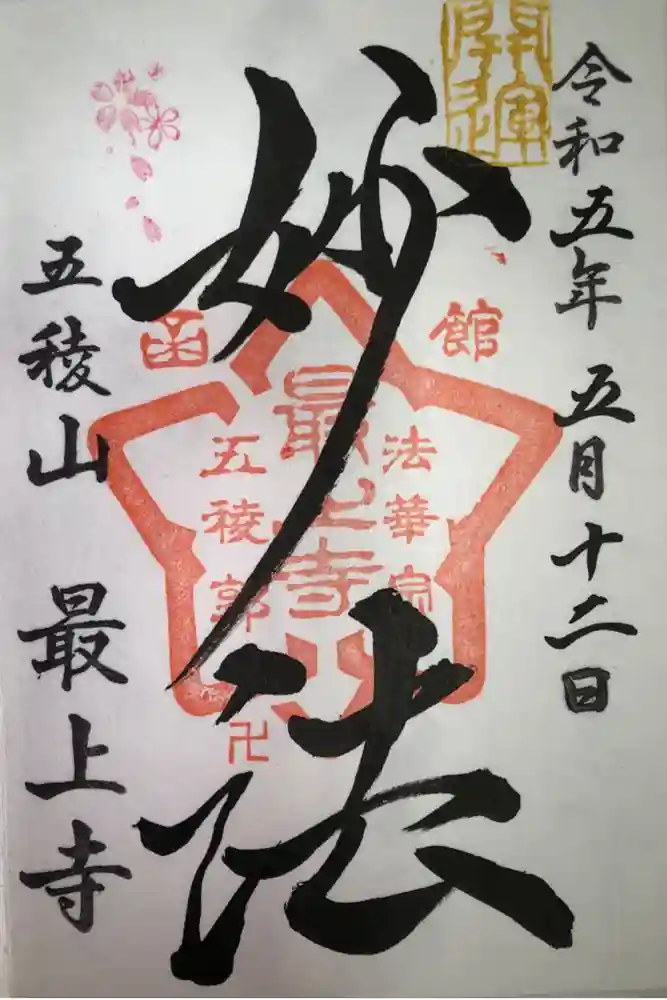 令和五年 五月十二日
開運
妙法
函館
法華宗
最上寺
五稜郭
卍
五稜山 最上寺